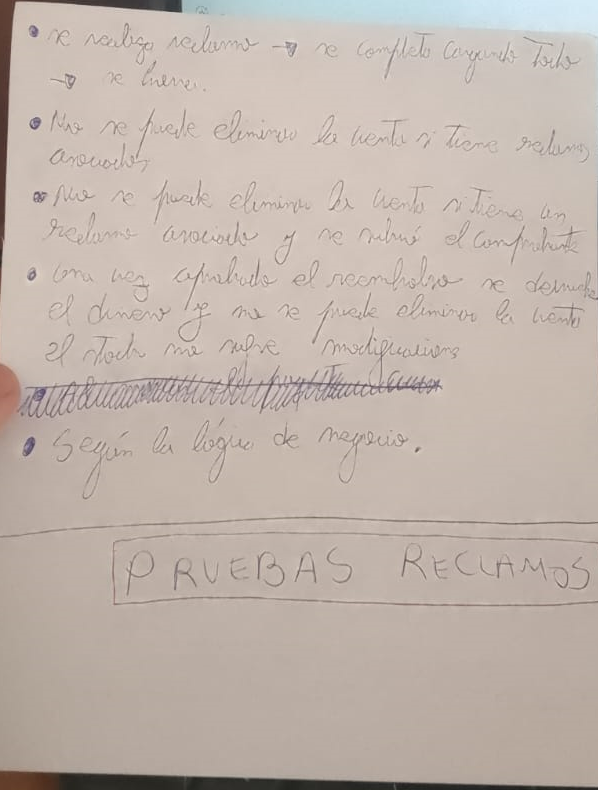 • se realiza reclamo → se completa cargando todo
→ se
• No se puede eliminar la venta si tiene reclamos
asociados
• No se puede eliminar la venta si tiene un
reclamo asociado y se subió el comprobante
• una vez aprobado el reembolso se
el dinero y no se puede eliminar la venta
el stock no sufre modificaciones
• Según la lógica de negocio.
PRUEBAS RECLAMOS